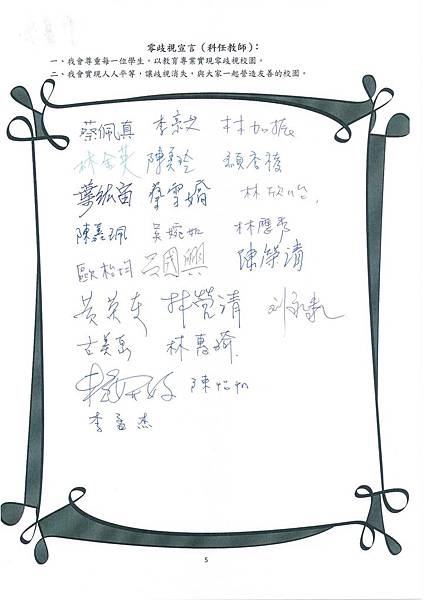 零歧視宣言(科任教師):
一、我會尊重每一位學生,以教育專業實現零歧視校園。
二、我會實現人人平等,讓歧視消失,與大家一起營造友善的校園。
蔡佩真 林加振
林金英 陳美玲 顏秀稜
葉紘宙 蔡雪嬌 林欣怡
陳嘉珮 吳婉如
歐柏均 呂國興 陳榮清
黃英 林莞清
古美 林惠
陳怡
李孟杰
5